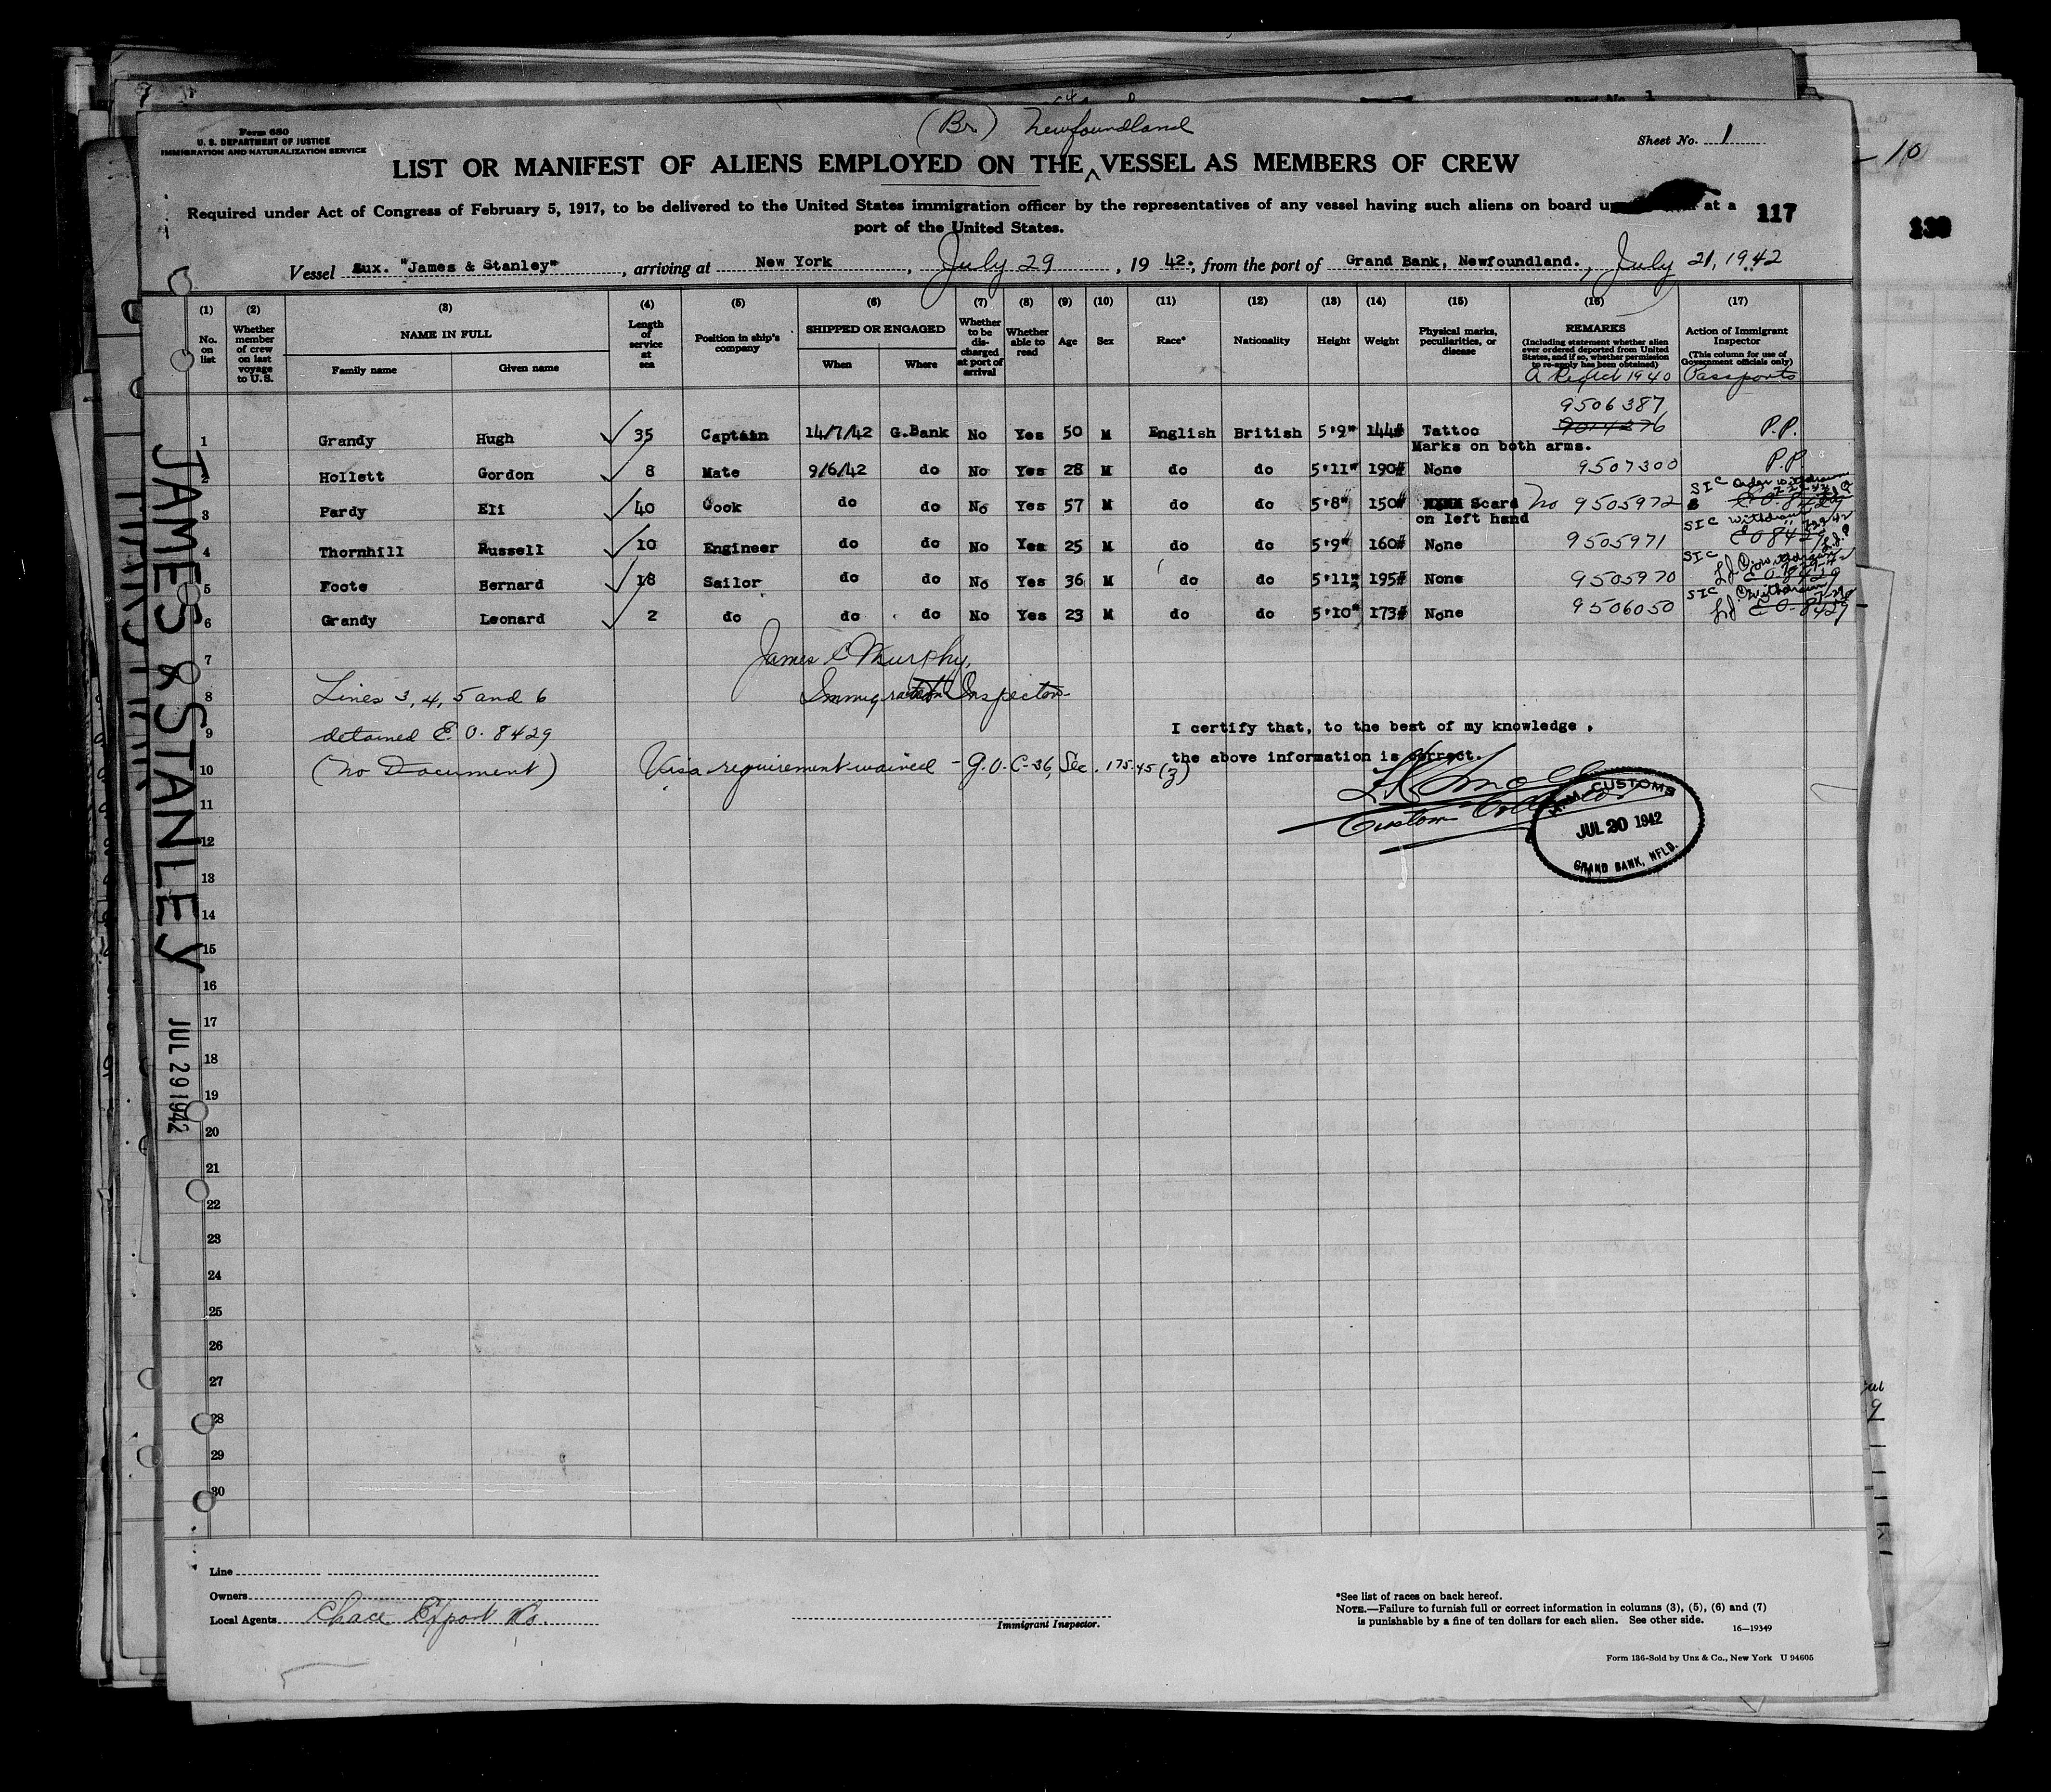 Form 680
U. S. DEPARTMENT OF JUSTICE
IMMIGRATION AND NATURALIZATION SERVICE
(Br.) Newfoundland
Sheet No. 1
LIST OR MANIFEST OF ALIENS EMPLOYED ON THE VESSEL AS MEMBERS OF CREW
Required under Act of Congress of February 5, 1917, to be delivered to the United States immigration officer by the representatives of any vessel having such aliens on board at a
port of the United States.
117
130
10
Vessel Aux. "James & Stanley", arriving at New York, July 29, 19 42., from the port of Grand Bank, Newfoundland., July 21, 1942
(1) (2) (3) (4) (5) (6) (7) (8) (9) (10) (11) (12) (13) (14) (15) (16) (17)
No. on list
Whether member of crew on last voyage to U.S.
NAME IN FULL
Family name
Given name
Length of service at sea
Position in ship's company
SHIPPED OR ENGAGED
When
Where
Whether to be discharged at port of arrival
Whether able to read
Age
Sex
Race*
Nationality
Height
Weight
Physical marks, peculiarities, or disease
REMARKS
(Including statement whether alien ever ordered deported from United States, and if so, whether permission to re-apply has been obtained)
A Reg Act 1940
Action of Immigrant Inspector
(This column for use of Government officials only)
Passports
9506387
1 Grandy Hugh 35 Captain 14/7/42 G.Bank No Yes 50 M English British 5'9" 144# Tattoo 9014276 P.P.
Marks on both arms.
2 Hollett Gordon 8 Mate 9/6/42 do No Yes 28 M do do 5'11" 190# None 9507300 P.P.
SIC Order withdrawn
3 Pardy Eli 40 Cook do do No Yes 57 M do do 5'8" 150# Scard No 9505972 E O 8429
on left hand
SIC withdrawn
4 Thornhill Russell 10 Engineer do do No Yes 25 M do do 5'9" 160# None 9505971 E O 8429
SIC
5 Foote Bernard 18 Sailor do do No Yes 36 M do do 5'11" 195# None 9505970 E O 8429
SIC withdrawn
6 Grandy Leonard 2 do do do No Yes 23 M do do 5'10" 173# None 9506050 E O - 8429
7
James C Murphy,
8 Lines 3, 4, 5 and 6
Immigration Inspector
9 detained E. O. 8429
10 (No Document)
Visa requirement waived - G.O. C-36, Sec. 175.45 (3)
I certify that, to the best of my knowledge ,
the above information is correct.
Customs
CUSTOMS
JUL 20 1942
GRAND BANK, NFLD.
11
12
13
14
15
16
17
18
19
20
21
22
23
24
25
26
27
28
29
30
JAMES & STANLEY
JUL 29 1942
Line
Owners
Local Agents Chace Export Co.
Immigrant Inspector.
*See list of races on back hereof.
NOTE.—Failure to furnish full or correct information in columns (3), (5), (6) and (7)
is punishable by a fine of ten dollars for each alien. See other side.
16—19349
Form 136-Sold by Unz & Co., New York U 94605